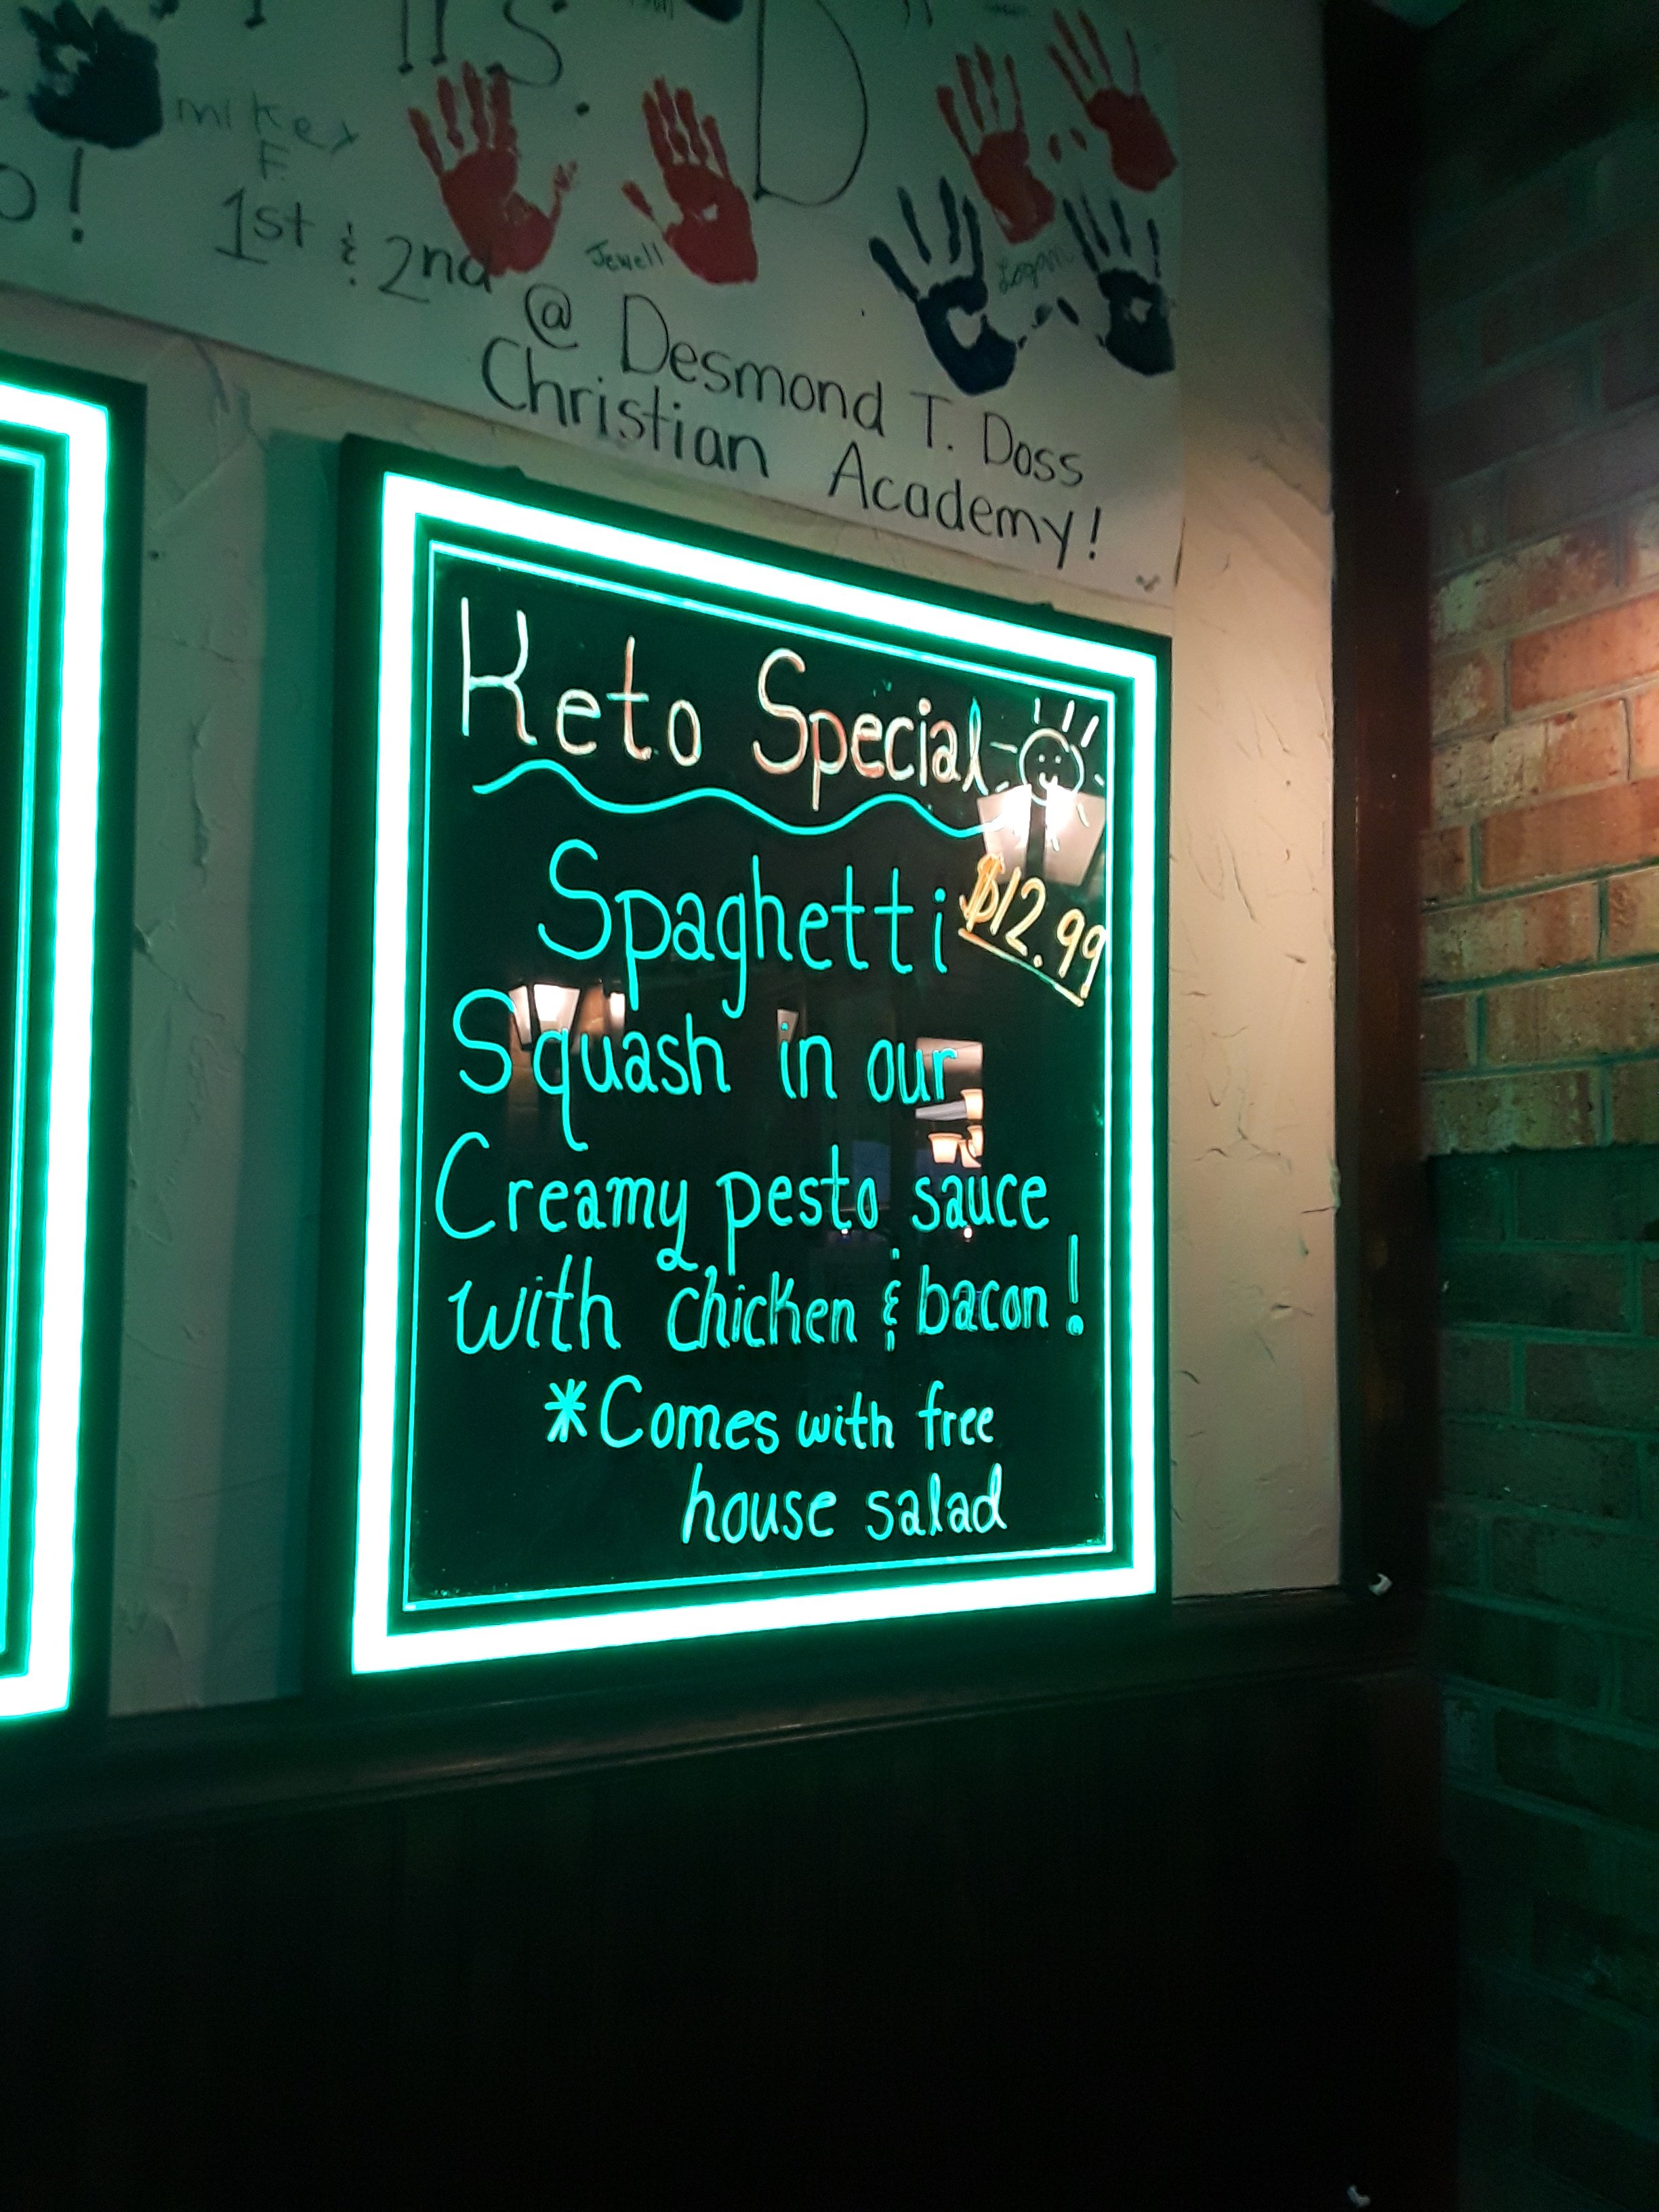 's. D
mikey
F.
o!
1st & 2nd
Jewell
Logan
@ Desmond T. Doss
Christian Academy!
Keto Special
Spaghetti $12.99
Squash in our
Creamy pesto sauce
with chicken & bacon!
*Comes with free
house salad